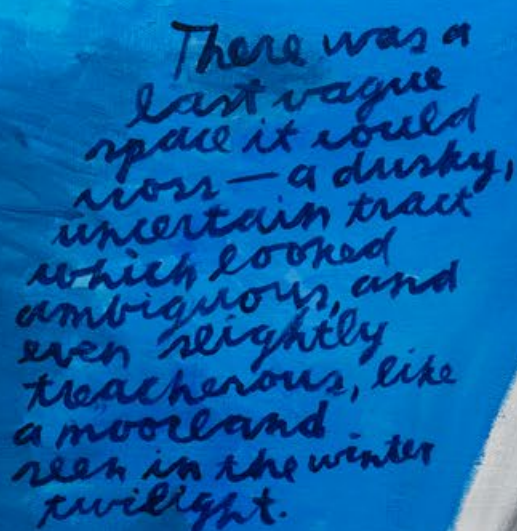 There was a
last vague
space it could
cross—a dusky,
uncertain tract
which looked
ambiguous, and
even slightly
treacherous, like
a moorland
seen in the winter
twilight.